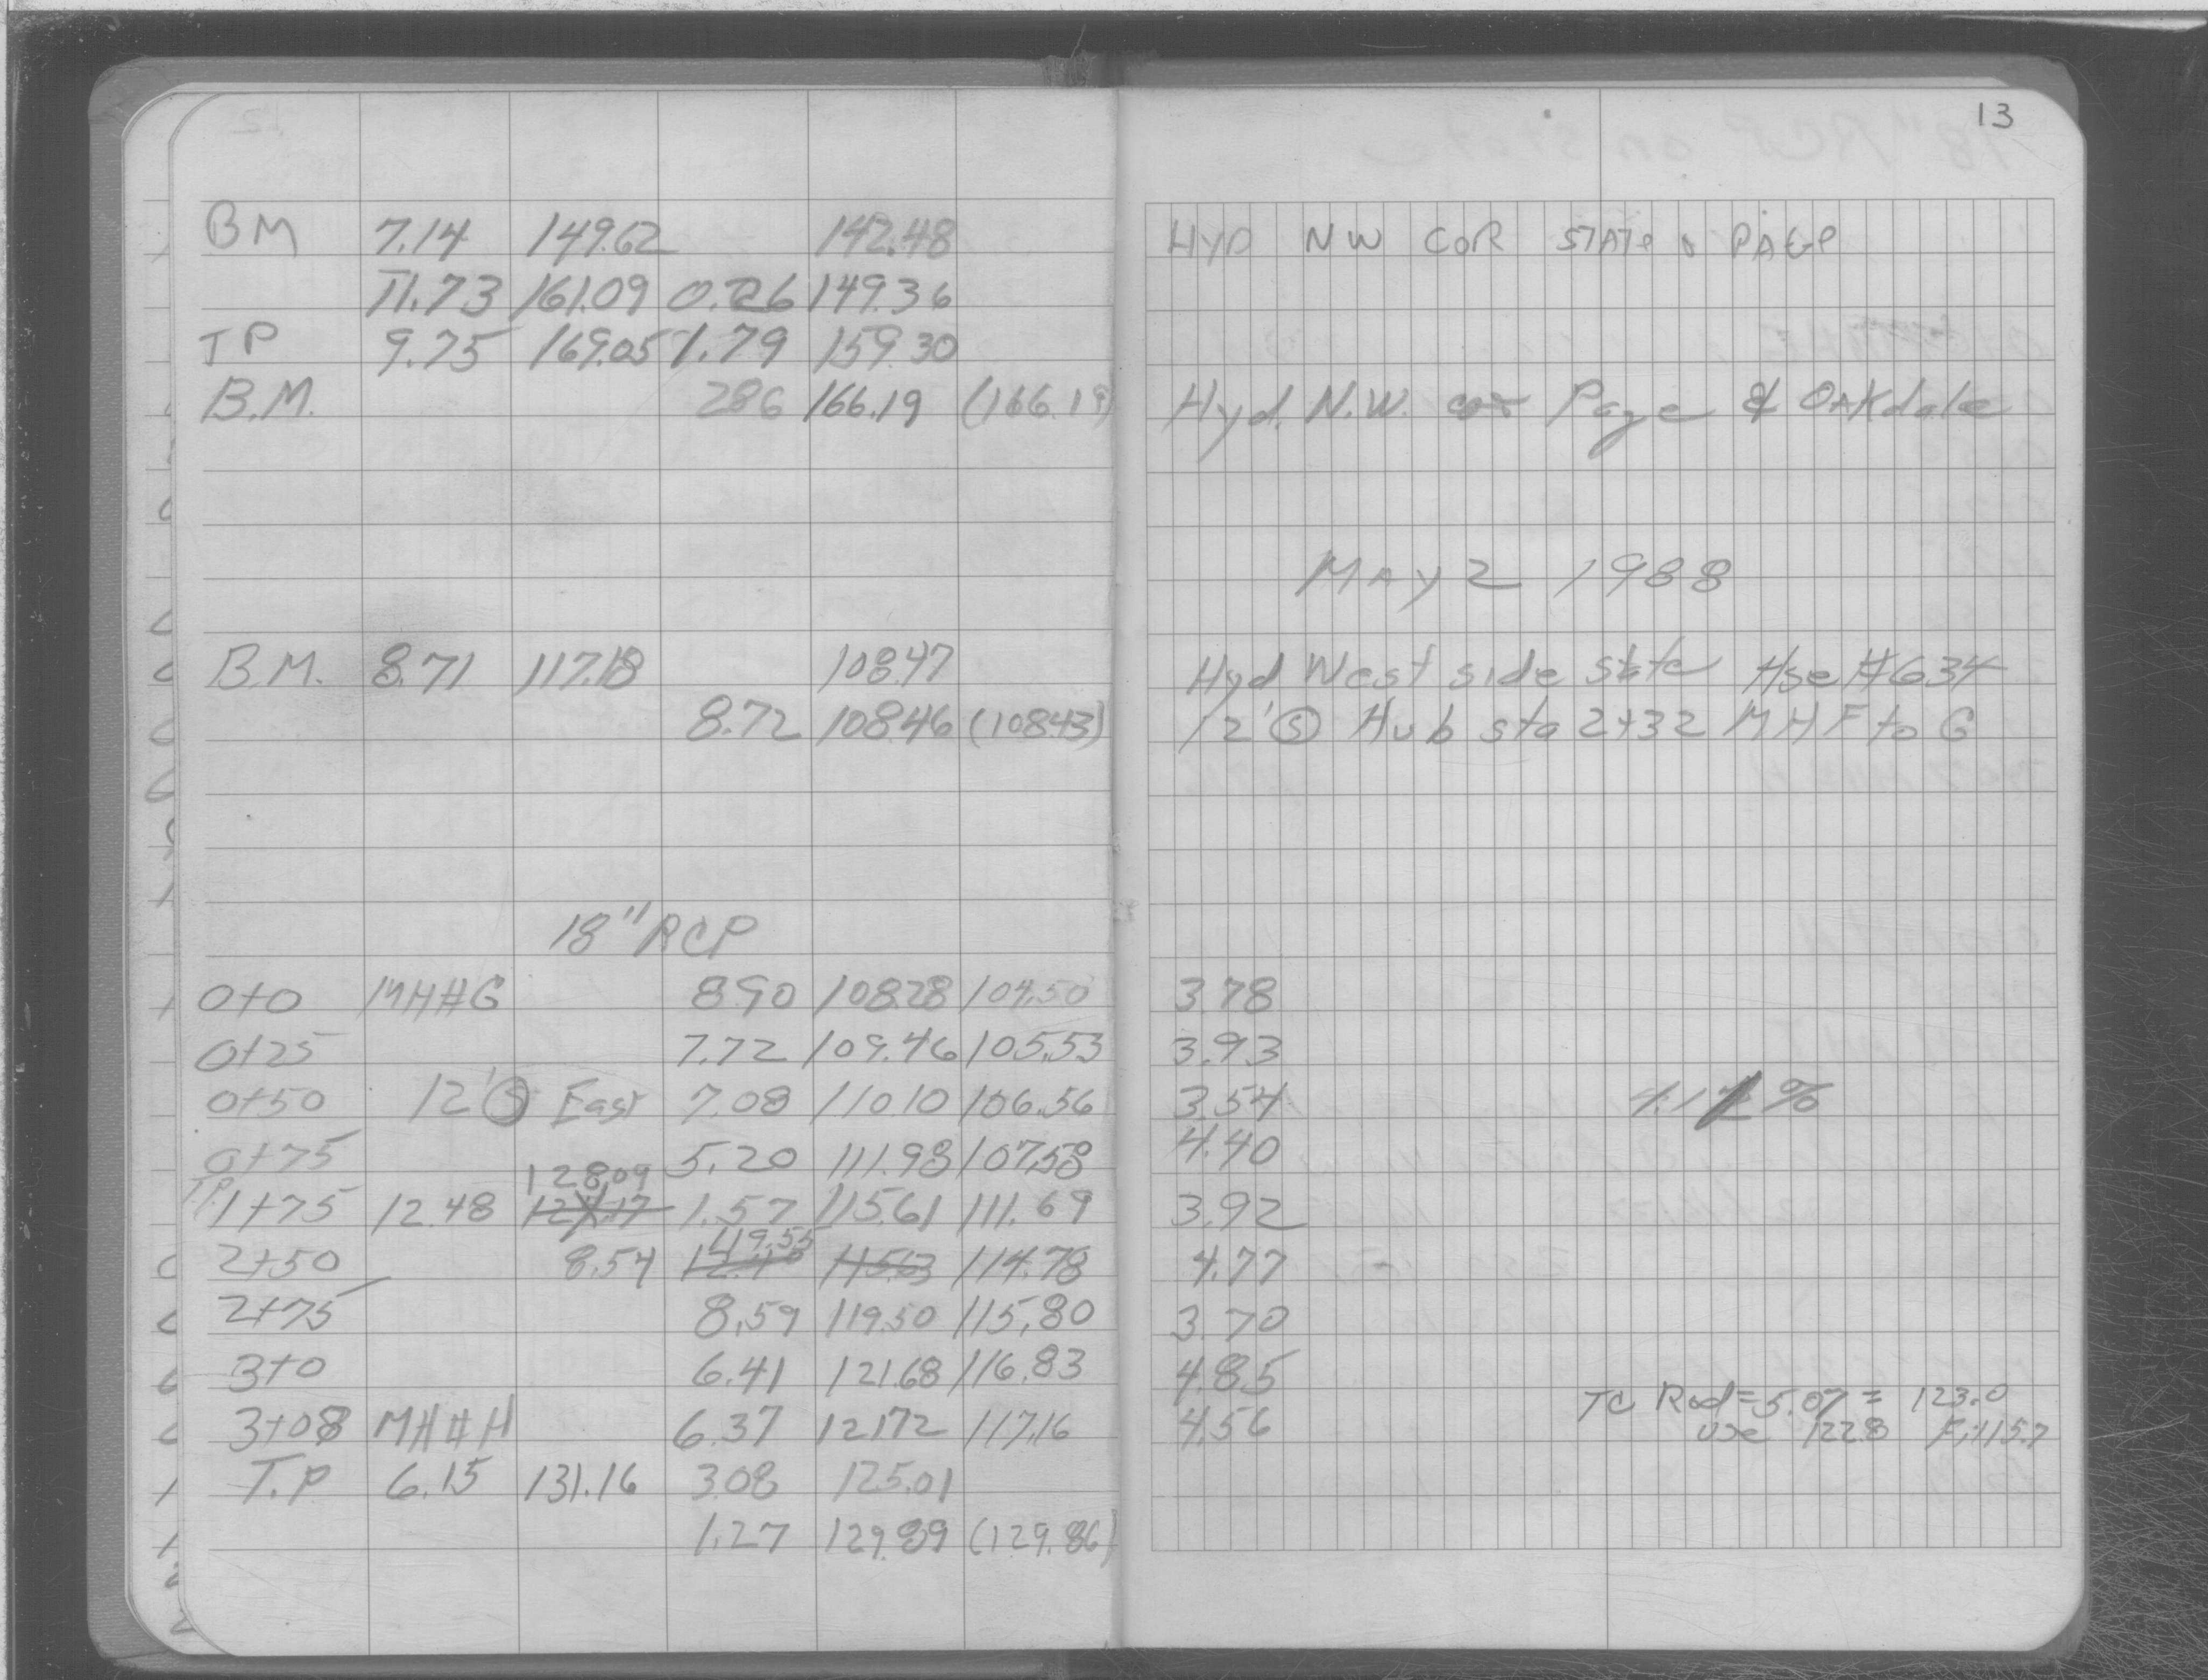 13
BM 7.14 149.62 142.48 HYD NW COR STATE & PAGE
11.73 161.09 0.26 149.36
TP 9.75 169.05 1.79 159.30
B.M. 2.86 166.19 (166.19) Hyd. N.W. cor Page & Oakdale
May 2 1988
B.M. 8.71 117.18 108.47 Hyd West side State Hse #634
8.72 108.46 (108.43) 12' Ⓢ Hub sta 2+32 MH F to G
18" RCP
0+0 MH#G 8.90 108.28 104.50 3.78
0+25 7.72 109.46 105.53 3.93
0+50 12' Ⓢ East 7.08 110.10 106.56 3.54 %
0+75 5.20 111.98 107.58 4.40
128.09
T.P. 1+75 12.48 1.57 115.61 111.69 3.92
119.55
2+50 8.54 12.48 115.63 114.78 4.77
2+75 8.59 119.50 115.80 3.70
3+0 6.41 121.68 116.83 4.85
TC Rod=5.07= 123.0
3+08 MH#H 6.37 121.72 117.16 4.56 use 122.8 F=115.7
T.P 6.15 131.16 3.08 125.01
1.27 129.89 (129.86)